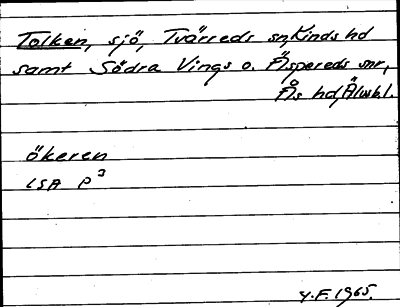 Tolken, sjö, Tvärreds sn, Kinds hd
samt Södra Vings o. Äspereds snr,
Ås hd, Älvsbl.
ökeren
LSA P3
Y.F. 1965.